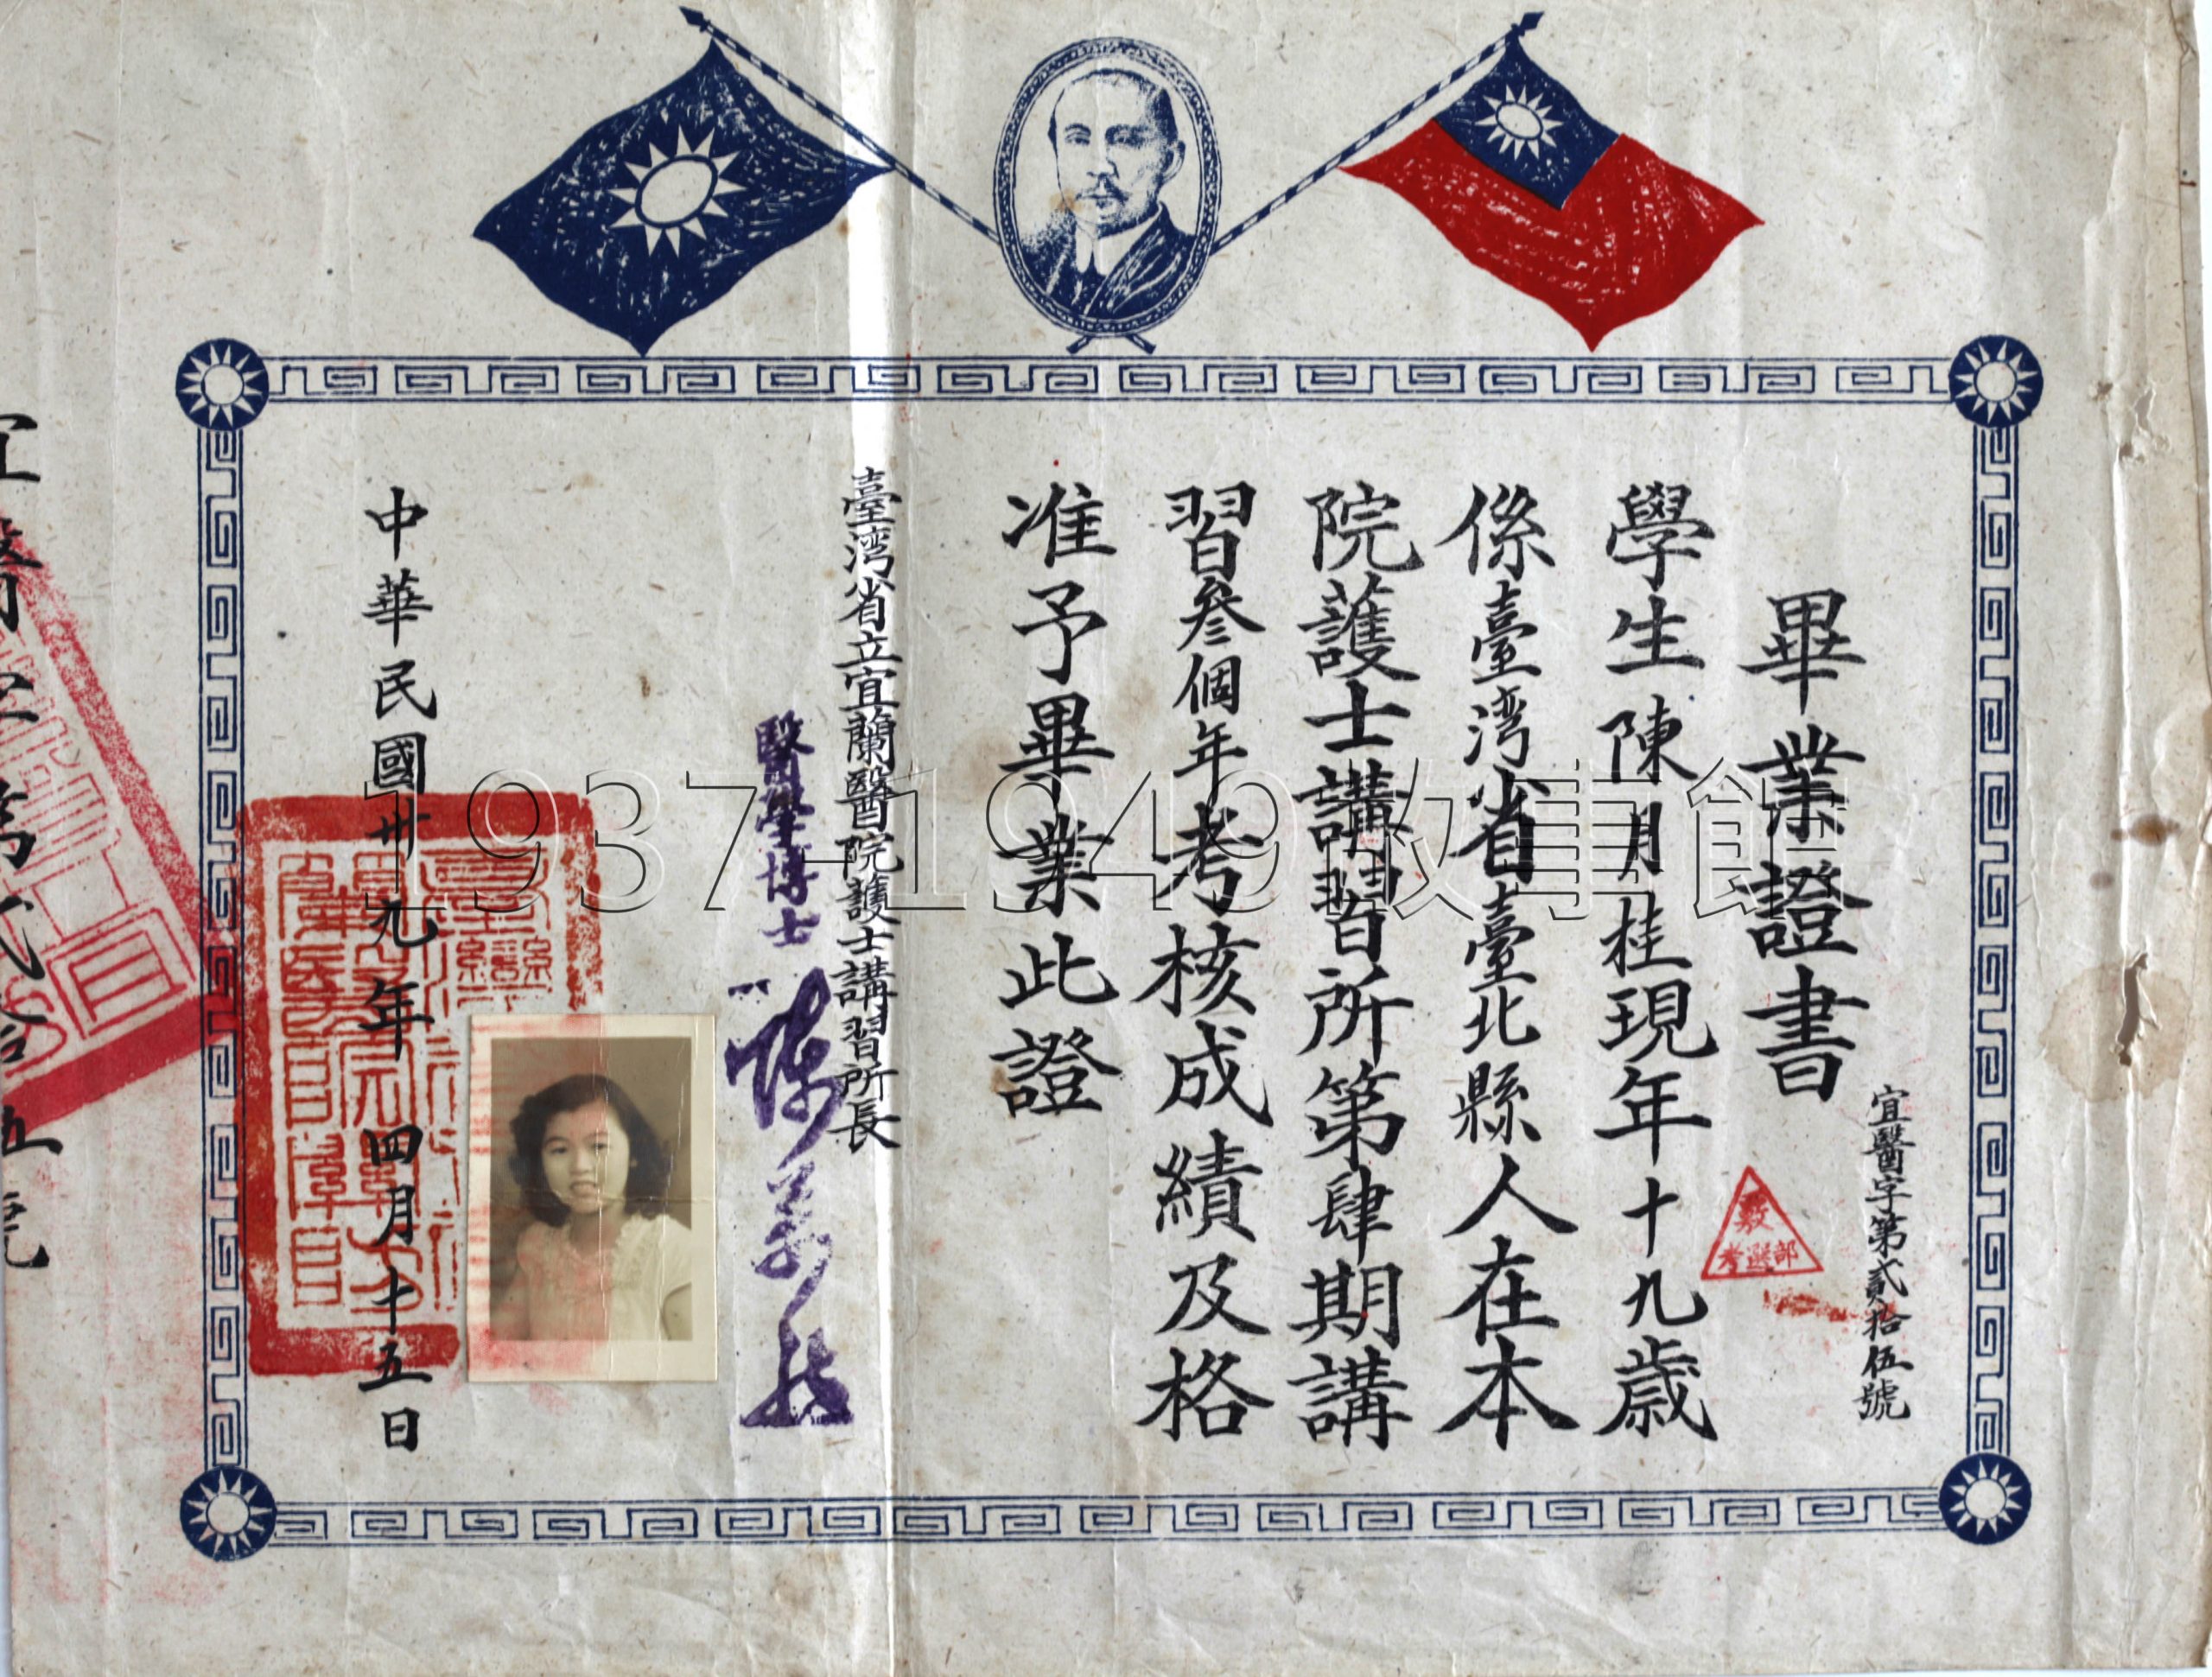 畢業證書
宜醫字第貳拾伍號
學生陳月桂現年十九歲
係臺灣省臺北縣人在本
院護士講習所第肆期講
習叄個年考核成績及格
准予畢業此證
臺灣省立宜蘭醫院護士講習所長
醫學博士
中華民國卅九年四月十五日
考選部
1937-1949故事館